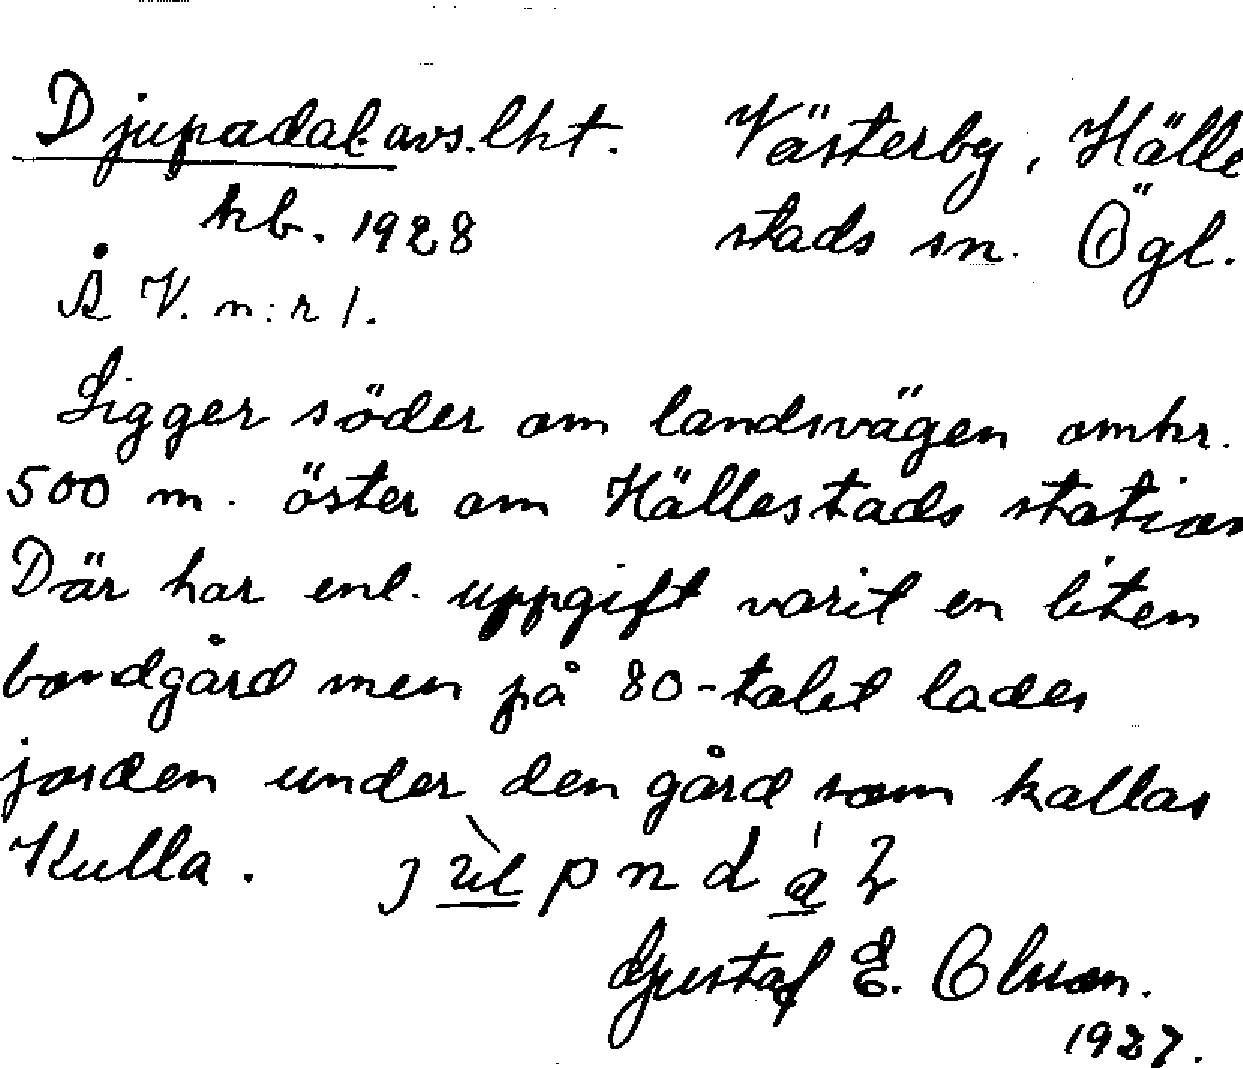 Djupadal. avs. lht. Västerby, Hälle
kb. 1928 stads sn. Ögl.
Å V. n:r 1.
Ligger söder om landsvägen omkr.
500 m. öster om Hällestads station
Där har enl. uppgift varit en liten
bondgård men på 80-talet lades
jorden under den gård som kallas
Kulla.
Gustaf E. Olsson.
1927.